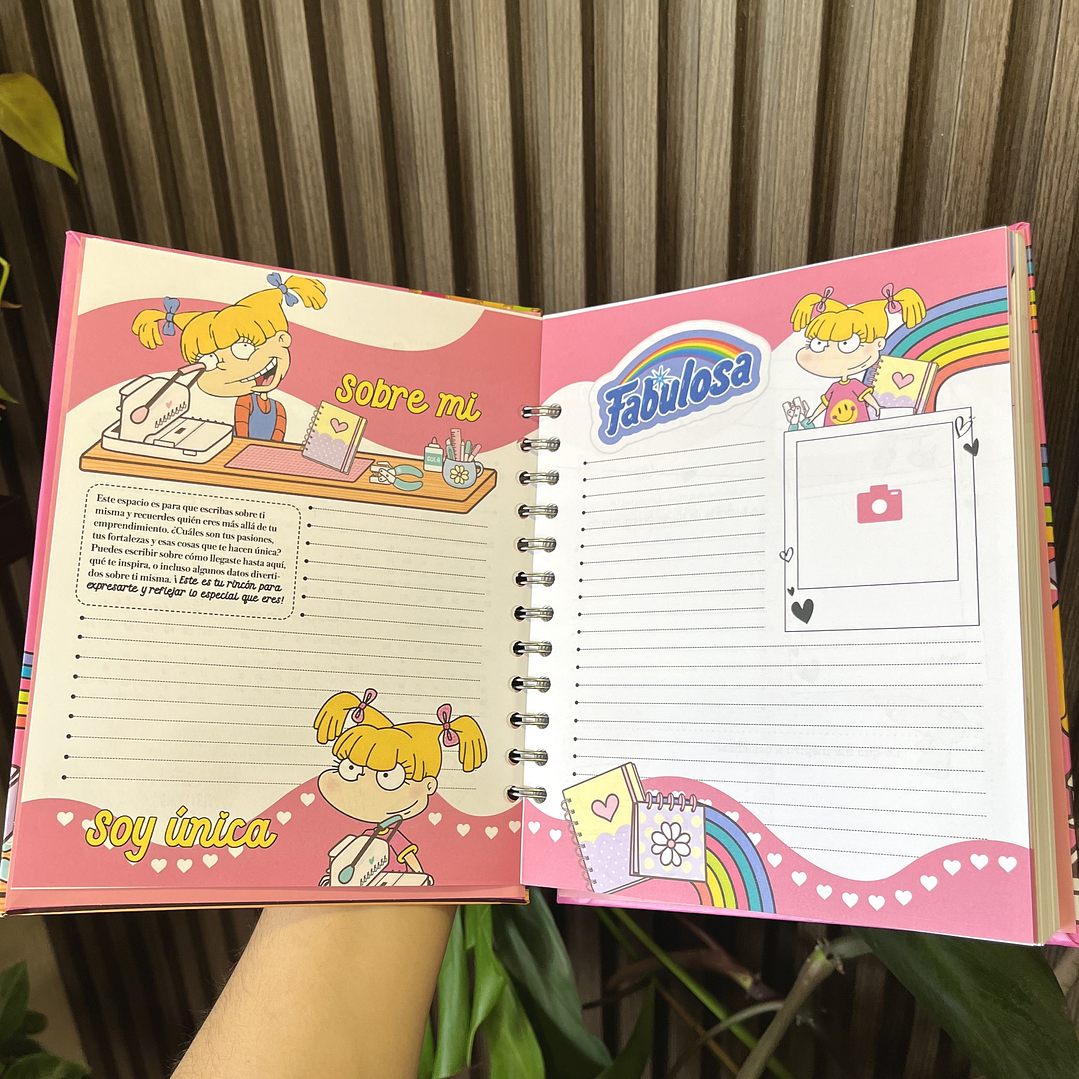 sobre mi
Este espacio es para que escribas sobre ti
misma y recuerdes quién eres más allá de tu
emprendimiento. ¿Cuáles son tus pasiones,
tus fortalezas y esas cosas que te hacen única?
Puedes escribir sobre cómo llegaste hasta aquí,
qué te inspira, o incluso algunos datos diverti-
dos sobre ti misma. ¡Este es tu rincón para
expresarte y reflejar lo especial que eres!
soy única
Fabulosa